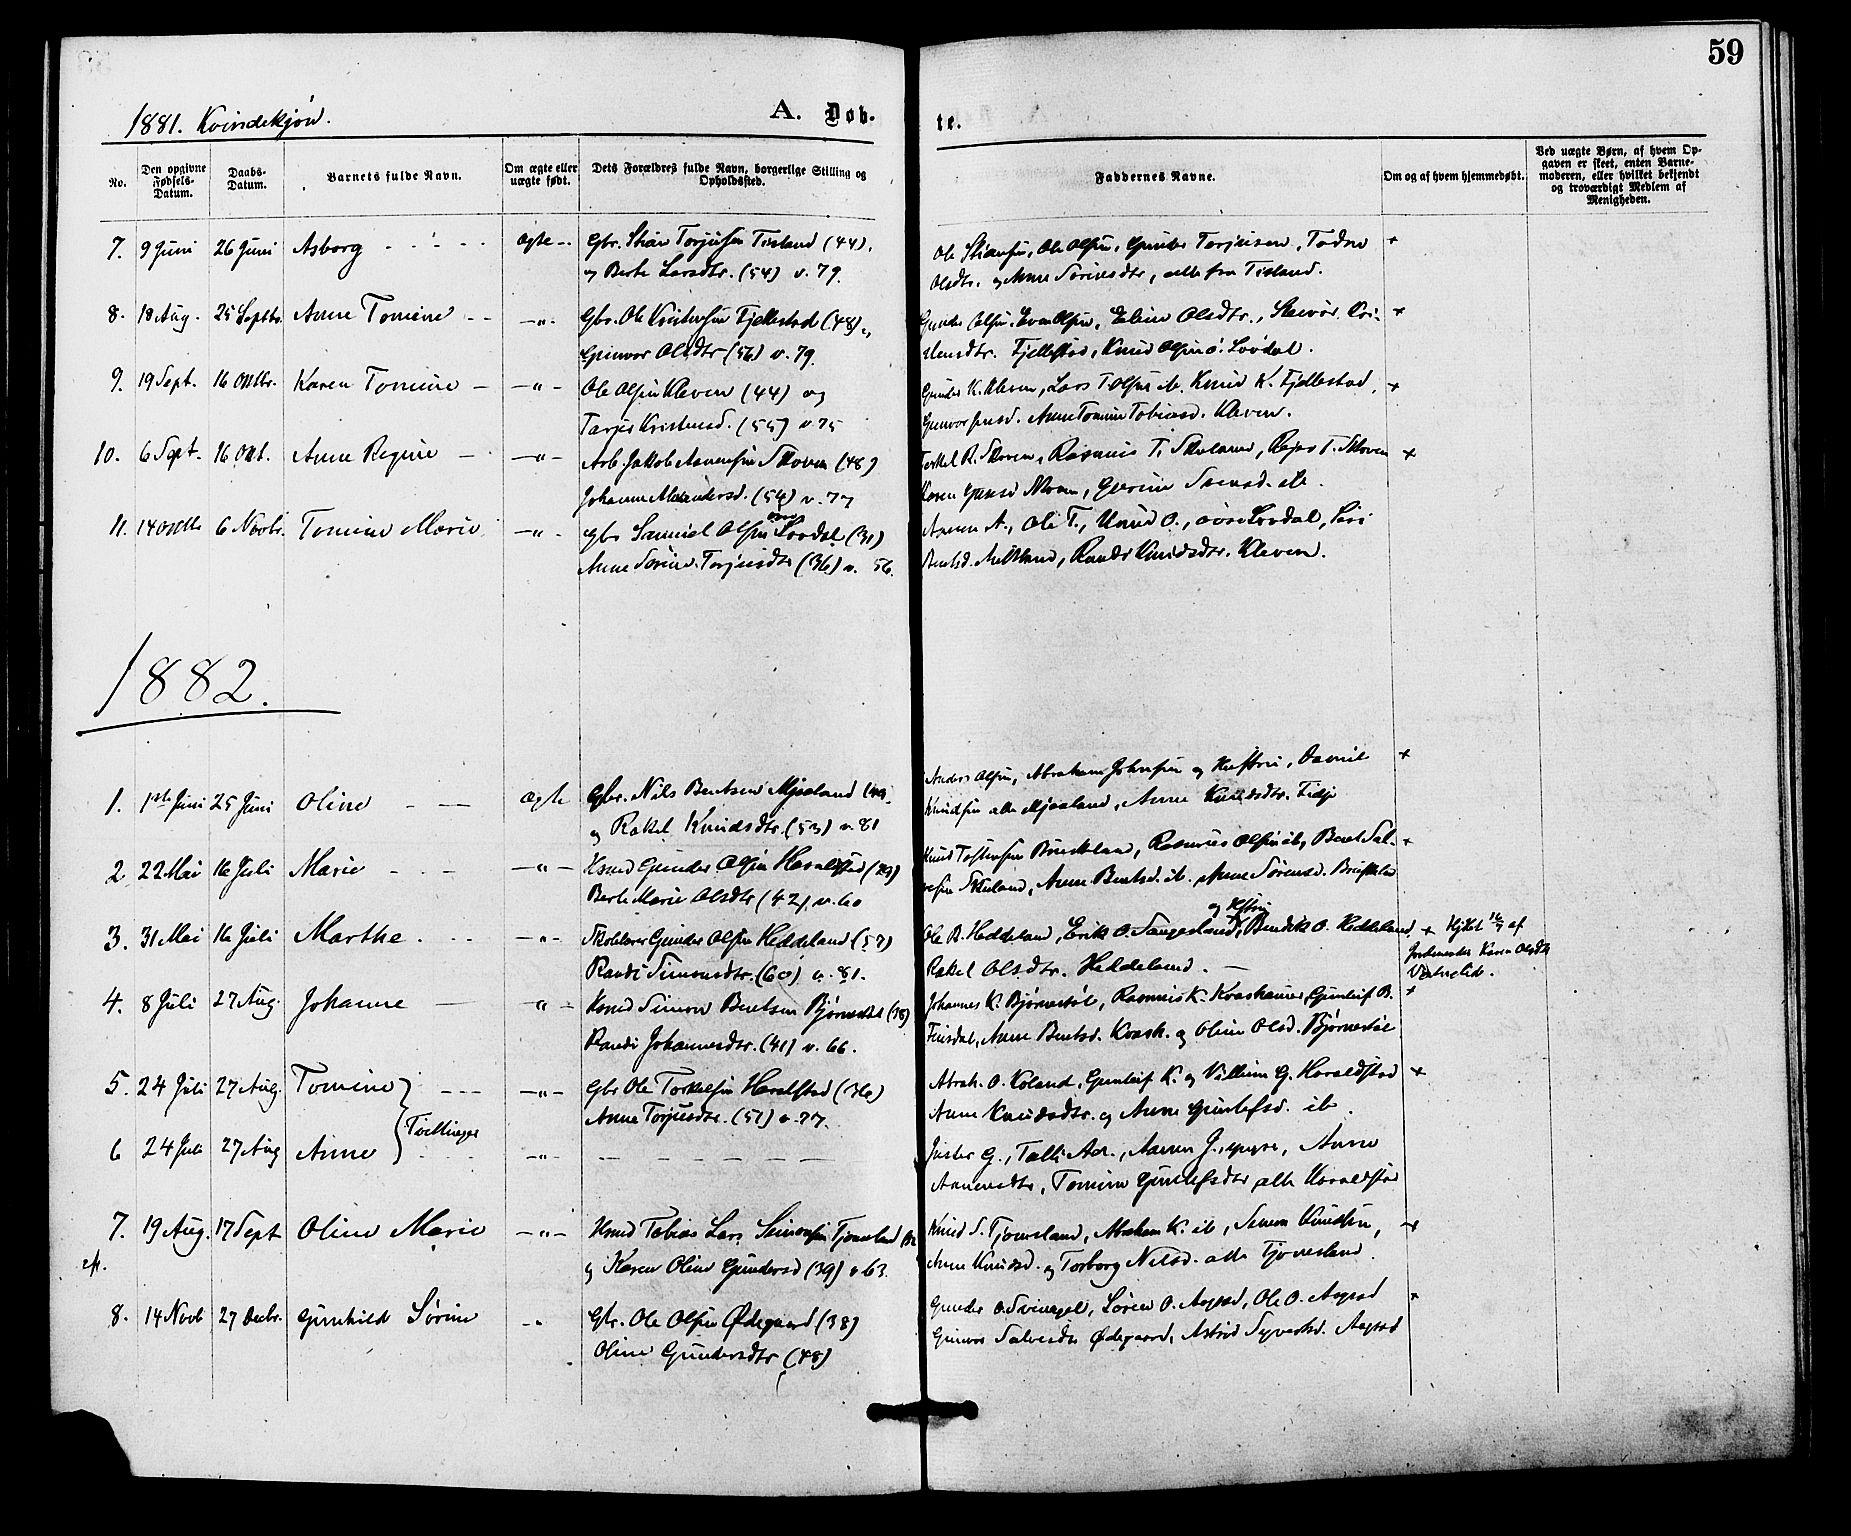 59
1881. Kvindekjøn.
A. Døb-
te.
No.
Den opgivne Fødsels-Datum.
Daabs-Datum.
Barnets fulde Navn.
Om ægte eller uægte født.
Dets Forældres fulde Navn, borgerlige Stilling og Opholdssted.
Faddernes Navne.
Om og af hvem hjemmedøbt.
Ved uægte Børn, af hvem Opgaven er skeet, enten Barnemoderen, eller hvilket bekjendt og troværdigt Medlem af Menigheden.
7. 9 Juni 26 Juni Asborg Ægte Gbr. Stian Torjusen Tisland (44),
og Berte Larsdtr. (54) v. 79.
Ole Stiansen, Ole Olsen, Gunder Torjusen, Todne
Olsdtr. og Anne Sørine dtr, alle fra Tisland.
8. 18 Aug. 25 Septbr. Anne Tomine Gbr. Ole Kristensen Fjellestad (48) og
Gunvor Olsdtr (56) v. 79.
Gunder Olsen, Even Olsen, Eline Olsdtr., Kri-
stensdtr. Fjellestad, Knud Olsen ø. Lovdal.
9. 19 Sept. 16 Oktbr. Karen Tomine Ole Olsen Kleven (44) og
Tarjer Kristensd. (55) v. 75
Gunder K. Kleven, Lars T Olsen ib. Knud K. Fjellestad,
Gunvor Anne Tomine Tobiasd. Kleven.
10. 6 Sept. 16 Okt. Anne Regine Arb. Jakob Aanensen Skoven (48)
Johanne Alexandersd. (54) v. 77
Torkel R. Skoven, Rasmus T. Skuland, T. Skoven
Karen Skoven, Gurine Svensd. ib.
11. 14 Oktb 6 Novbr. Tomine Marie Gbr Samuel Olsen øvre Lovdal (31)
Anne Sørine Torjusdtr (36) v. 56.
Aanen A., Ole T., Knud O., øvre Lovdal, Siri
Bentsd. Randi Knudsdtr. Kleven.
1882.
1. 1ste Juni 25 Juni Oline Ægte Gbr. Nils Bentsen Mjaaland
og Rakel Knudsdtr. (53) v. 81
Anders Olsen, Abraham Johnsen og Hustru, Daniel
Knudsen alle Mjaaland, Anne Knudsdtr.
2. 22 Mai 16 Juli Marie Hsmd Gunder Olsen Haraldstad
Berte Marie Olsdtr (42) v. 60
Knud Rasmus Olsen ib, Bent Sal-
vesen Skuland, Anne Bentsd. ib. Anne Sørensd.
3. 31 Mai 16 Juli Marthe Skolelærer Gunder Olsen Heddeland (57)
Randi Simonsdtr. (60) v. 81.
og Hustru
Ole B. Heddeland, Erik O. Sangesland, Bendik O. Heddeland
Rakel Olsdtr. Heddeland.
Hjdbt 16/7 af
Jordemoder Karen Olsdtr
4. 8 Juli 27 Aug. Johanne Hsmd Simon Bentsen Bjørnestøl (38)
Randi Johannesdtr. (41) v. 66.
Johannes K. Bjørnestøl, Rasmus K. Kvashaug, Gunleif B.
Finsdal, Anne Bentsd. Kvash. og Oline Olsd. Bjørnestøl
5. 24 Juli 27 Aug. Tomine Gbr Ole Torkelsen Haralstad (36)
Anne Torjusdtr. (51) v. 77.
Abrah. O. Koland, Gunleif K. og Villum G. Haraldstad
Anne Knudsdtr. og Anne Gunlefsd. ib.
Tvillinger
6 24 Juli 27 Aug Anne
G., Tolli Aa., Aanen J., Anne
Aanensdtr, Tomine Gunlefsdtr alle Haraldstad
7. 19 Aug. 17 Sept Oline Marie Hsmd Tobias Lars Simonsen Tjomsland
og Karen Oline Gundersd (39) v 63.
Knud S. Tjomsland, Abraham K. ib, Simon Knudsen,
Anne Knudsd. og Torborg Nilsd. alle Tjomsland.
8. 14 Novb 27 Decbr. Gunhild Sørine Gbr. Ole Olsen Ødegaard (38)
Oline Gundersdtr (48)
Gunder O. Svinagel, Søren O. Aagsad, Ole O. Aagsad
Gunvor Salvesdtr Ødegaard, Astrid Syvertsd. Aagsad